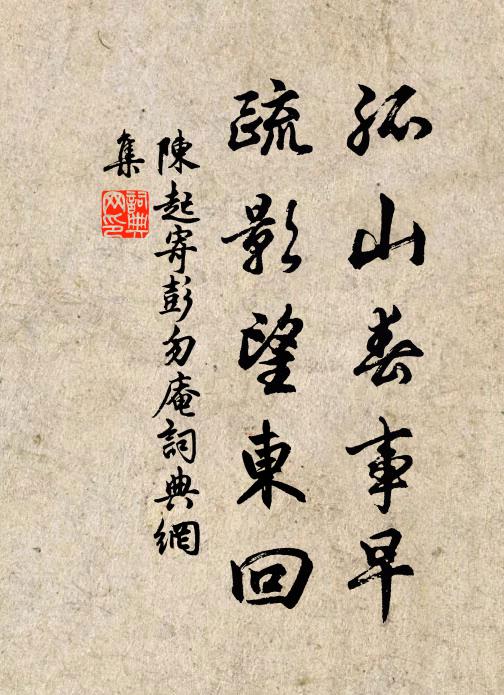 孤山春事早
疏影望東回
陳起寄彭勿庵詞典網
集
詞典
网印